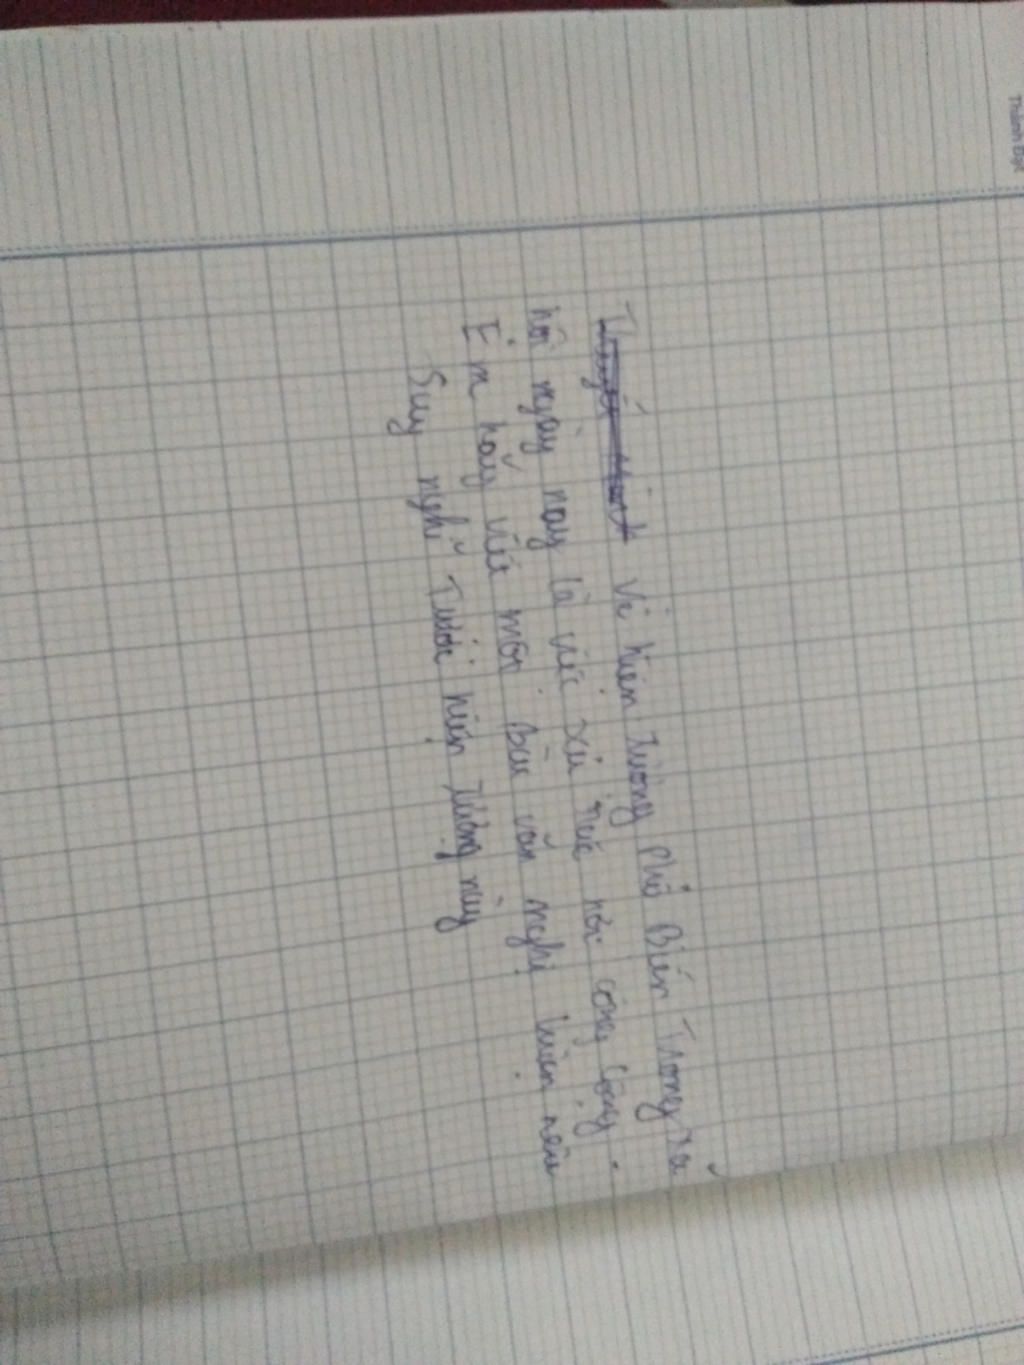 Thành Đạt
Vì hiện tượng phổ Biến Trong xã
hội ngày nay là việc xả rác nơi công cộng.
Em hãy viết một Bài văn nghị luận nêu
Suy nghĩ Trước hiện tượng này